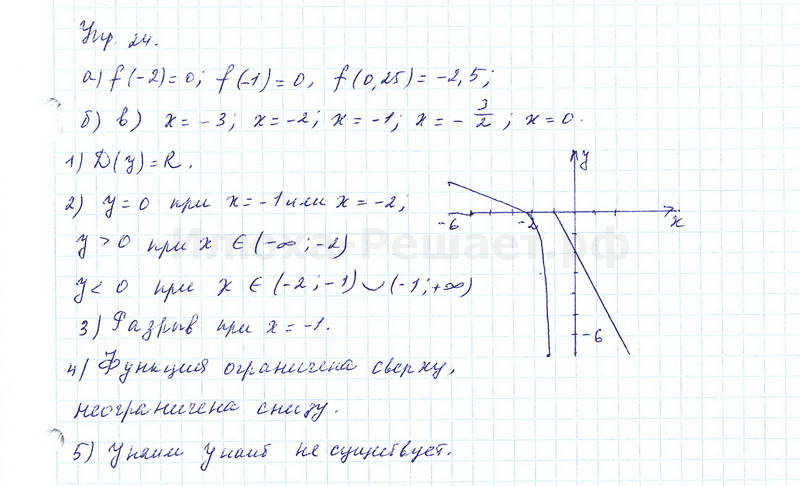 Упр. 24.
а) f(-2)=0; f(-1)=0, f(0,25)=-2,5;
б) в) x=-3; x=-2; x=-1; x=-3/2; x=0.
1) D(y)=R.
2) y=0 при x=-1 или x=-2;
y>0 при x ∈ (-∞;-2)
y<0 при x ∈ (-2;-1)∪(-1;+∞)
3) Разрыв при x=-1.
4) Функция ограничена сверху,
неограничена снизу.
5) y наим y наиб не существует.
y
-6 -2 x
-6
Илюха-Решает.рф